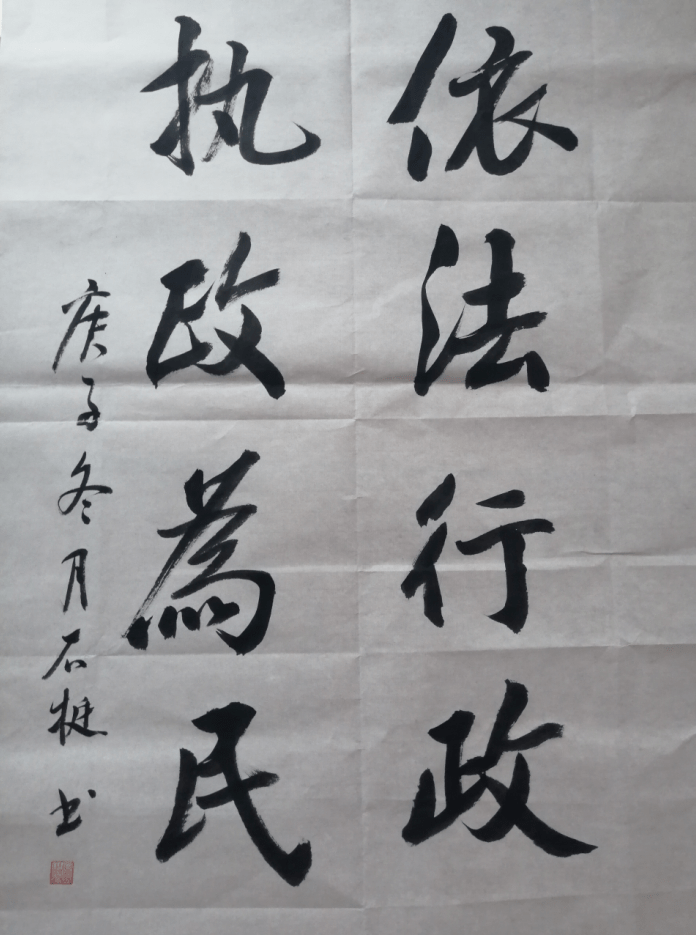 依法行政
执政為民
庚子冬月石楗书